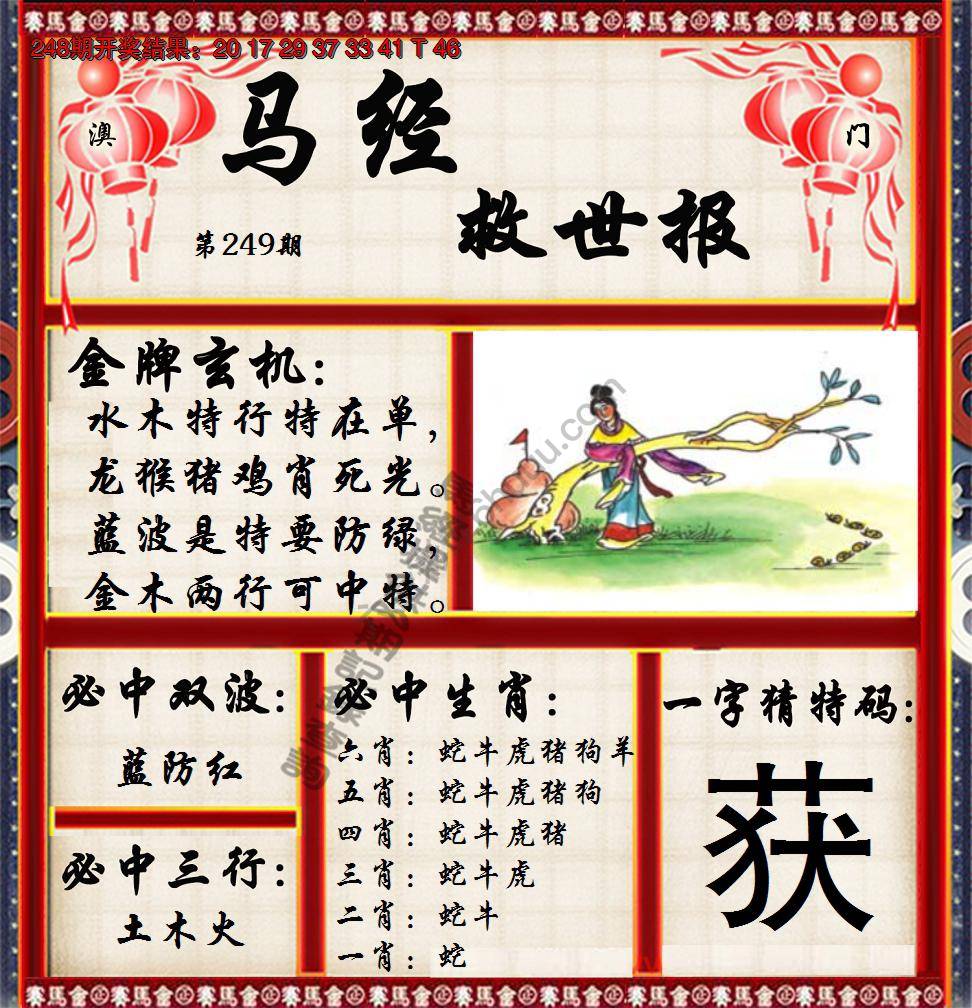 248期开奖结果：20 17 29 37 33 41 T 46
澳
门
马经
救世报
第249期
金牌玄机：
水木特行特在单，
龙猴猪鸡肖死光。
蓝波是特要防绿，
金木两行可中特。
必中双波：
蓝防红
必中三行：
土木火
必中生肖：
六肖：蛇牛虎猪狗羊
五肖：蛇牛虎猪狗
四肖：蛇牛虎猪
三肖：蛇牛虎
二肖：蛇牛
一肖：蛇
一字猜特码：
获